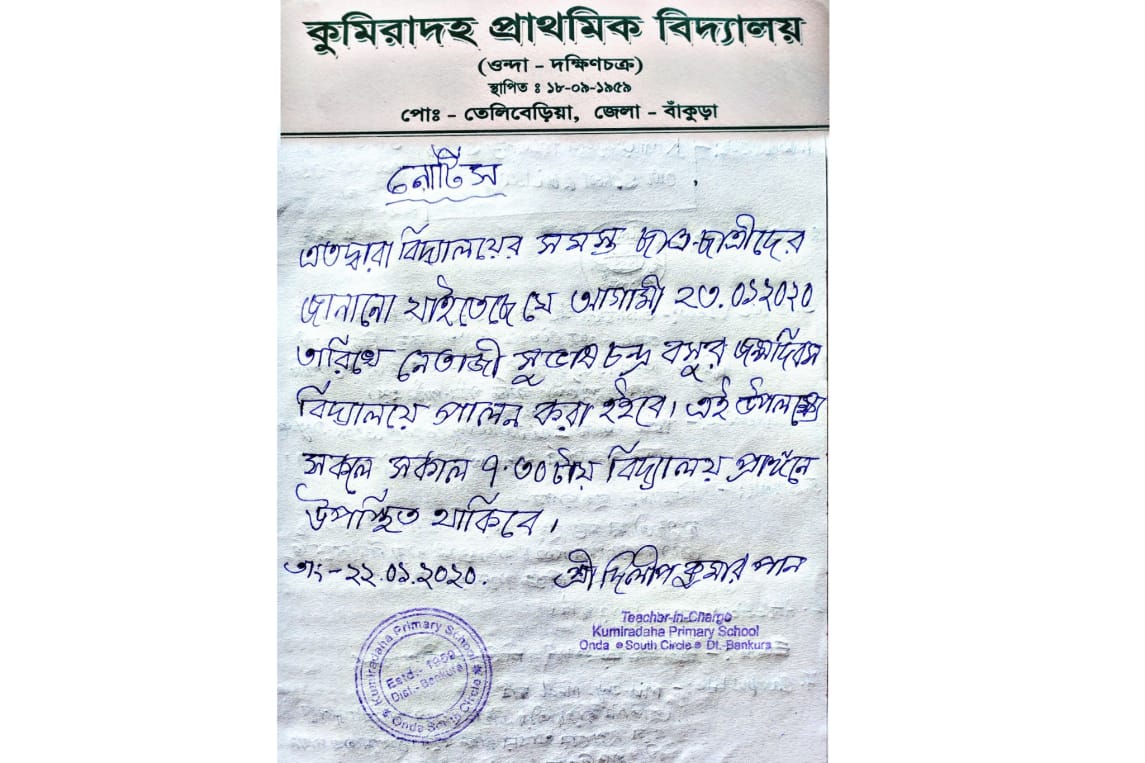 কুমিরাদহ প্রাথমিক বিদ্যালয়
(ওন্দা - দক্ষিণচক্র)
স্থাপিত ঃ ১৮-০৯-১৯৫৯
পোঃ - তেলিবেড়িয়া, জেলা - বাঁকুড়া
নোটিস
এতদ্বারা বিদ্যালয়ের সমস্ত ছাত্র-ছাত্রীদের
জানানো যাইতেছে যে আগামী ২৩.০১.২০২০
তারিখে নেতাজী সুভাষ চন্দ্র বসুর জন্মদিবস
বিদ্যালয়ে পালন করা হইবে। এই উপলক্ষ্যে
সকলে সকাল ৭.৩০টায় বিদ্যালয় প্রাঙ্গনে
উপস্থিত থাকিবে।
তাং-২২.০১.২০২০.
শ্রী দিলীপ কুমার পান
Teacher-in-Charge
Kumiradaha Primary School
Onda ● South Circle ● Dt.-Bankura
Kumiradaha Primary School
Estd.- 1959
Dist.- Bankura
Onda South Circle